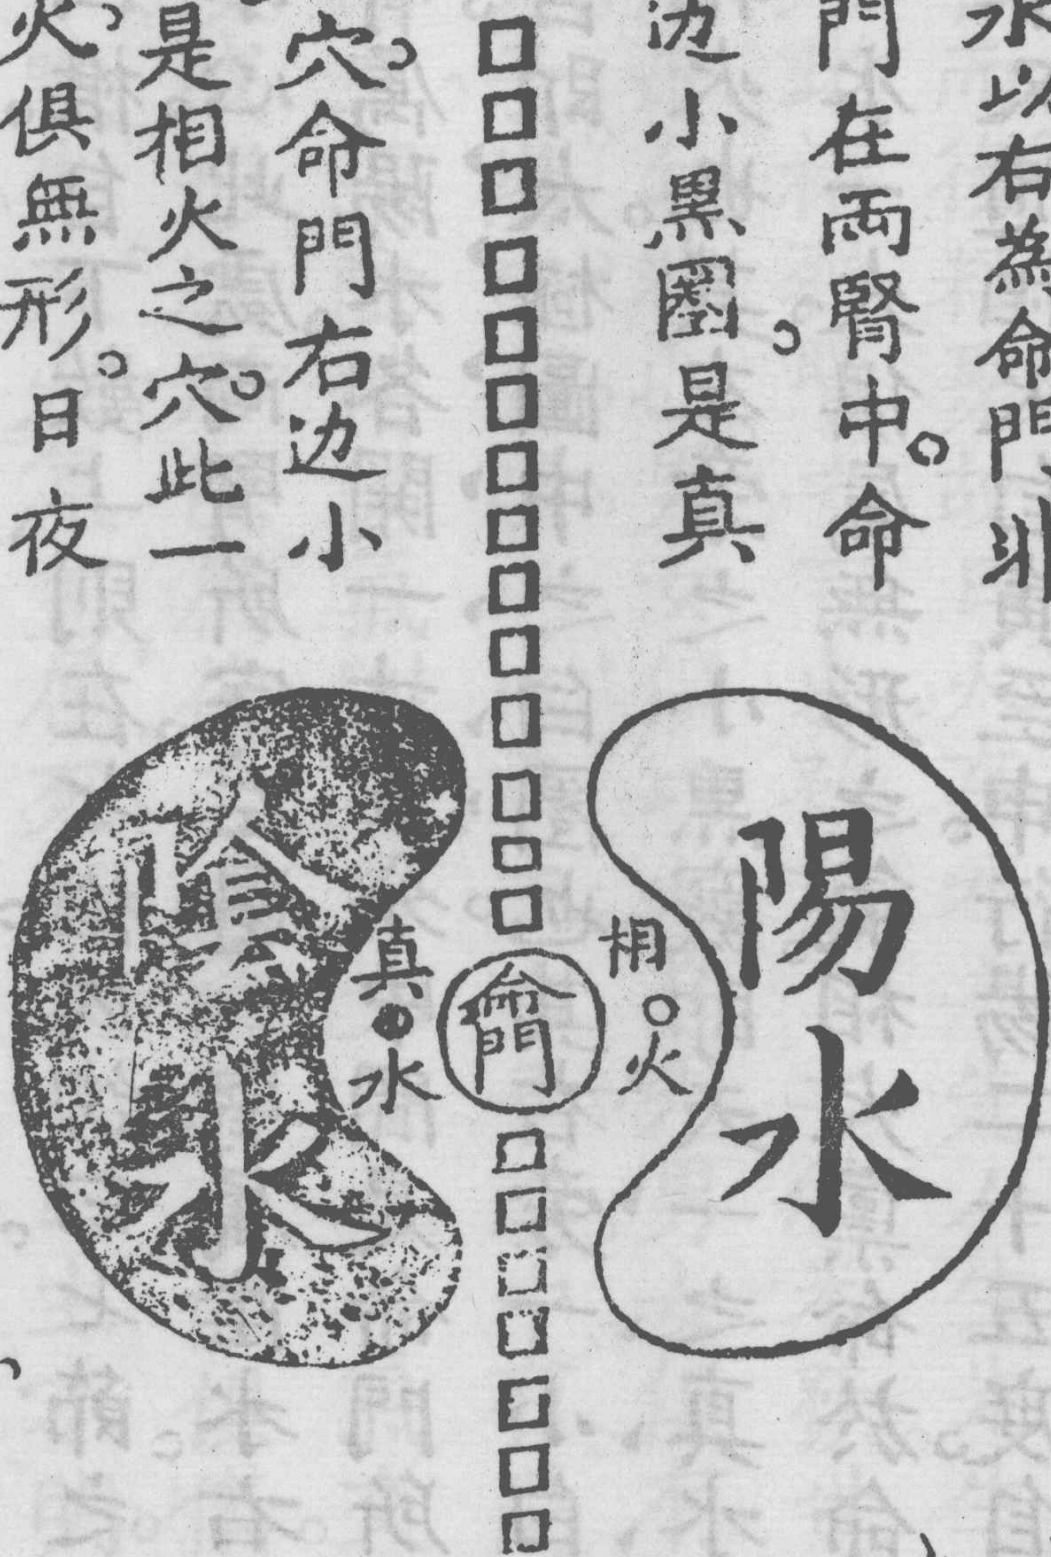 水以右為命門非
門在兩腎中。命
边小黑圈是真
穴。命門右边小
是相火之穴。此一
火俱無形。日夜
陽水
相火
命門
真水
陰水